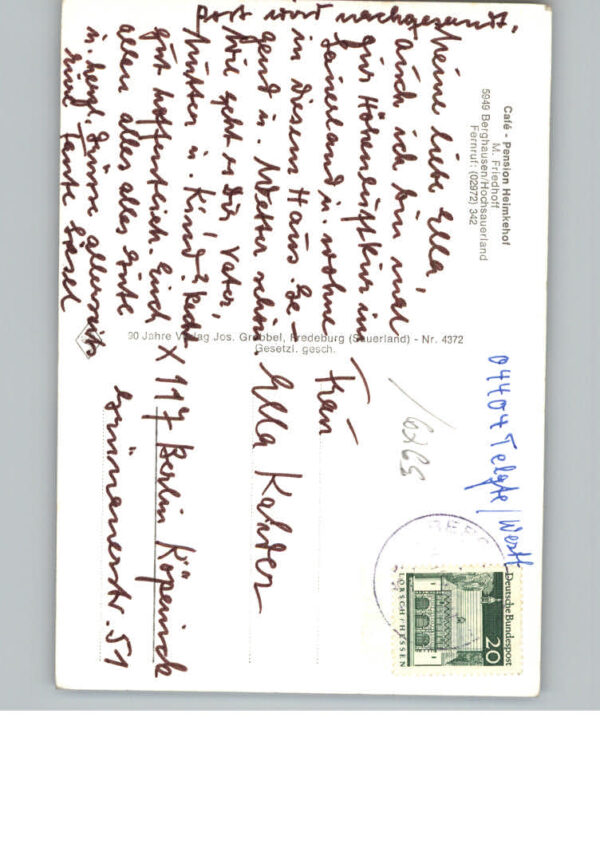 Café - Pension Heimkehof
M. Friedhoff
5949 Berghausen/Hochsauerland
Fernruf: (02972) 342
Meine liebe Ella,
auch ich bin mal
zur Höhenluftkur im
Sauerland u. wohne
in diesem Haus. Ge-
gend u. Wetter schön
Wie geht es Dir, Vater,
Mutter u. Kind?
gut hoffentlich. Euch
allen alles alles Gute
u. herzl. Grüsse allerseits
Tante Liesel
Post wird nachgesandt.
30 Jahre Verlag Jos. Grobbel, Fredeburg (Sauerland) - Nr. 4372
Gesetzl. gesch.
04404 Telgte/Westf
Frau
Ella
X 117 Berlin Köpenick
51
Deutsche Bundespost
20
LORSCH/HESSEN